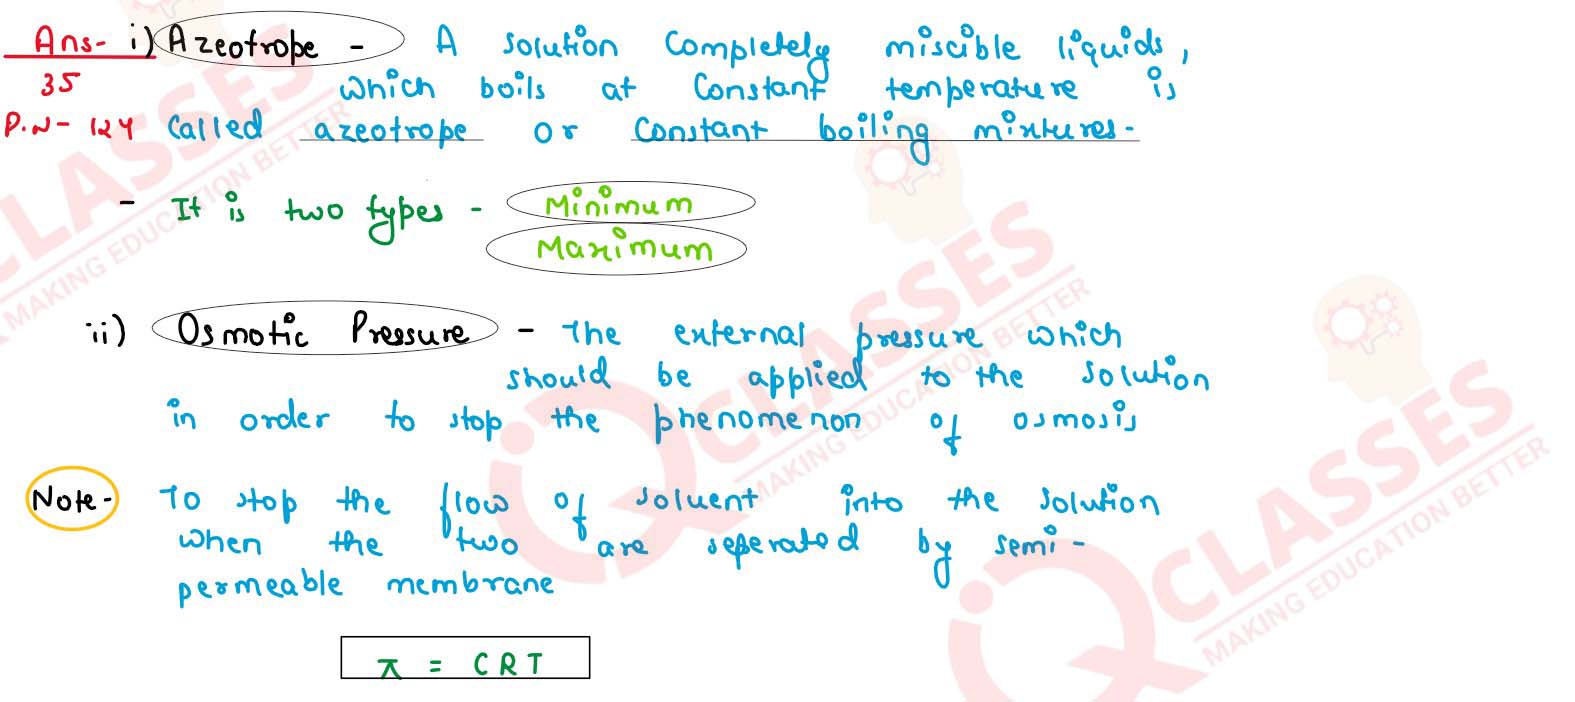 Ans- i) Azeotrope - A solution completely miscible liquids,
35 which boils at constant temperature is
P.N- 124 called azeotrope or constant boiling mixtures-
- It is two types - Minimum
Maximum
ii) Osmotic Pressure - The external pressure which
should be applied to the solution
in order to stop the phenomenon of osmosis
Note- To stop the flow of solvent into the solution
when the two are seperated by semi-
permeable membrane
π = CRT
CLASSES
MAKING EDUCATION BETTER
iQ CLASSES
MAKING EDUCATION BETTER
iQ CLASSES
MAKING EDUCATION BETTER